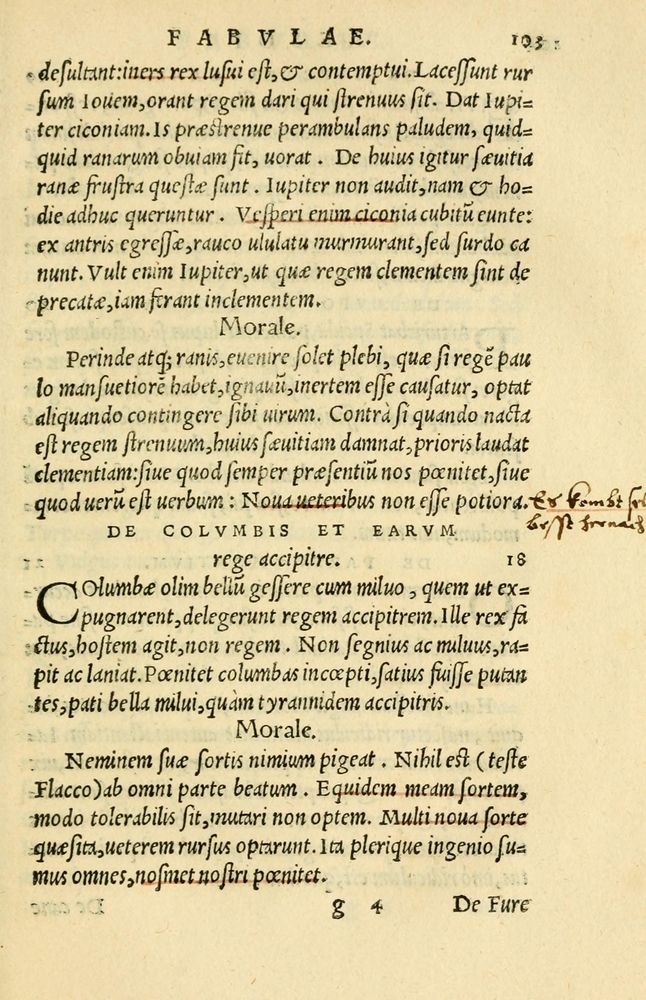 FABVLAE. 103
desultant: iners rex lusui est, & contemptui. Lacessunt rur
sum Iouem, orant regem dari qui strenuus sit. Dat Iupi=
ter ciconiam. Is præstrenue perambulans paludem, quid=
quid ranarum obuiam fit, uorat. De huius igitur sæuitia
ranæ frustra questæ sunt. Iupiter non audit, nam & ho=
die adhuc queruntur. Vesperi enim ciconia cubitū eunte:
ex antris egressæ, rauco ululatu murmurant, sed surdo ca
nunt. Vult enim Iupiter, ut quæ regem clementem sint de
precatæ, iam ferant inclementem.
Morale.
Perinde atq; ranis, euenire solet plebi, quæ si regē pau
lo mansuetiorē habet, ignauū, inertem esse causatur, optat
aliquando contingere sibi uirum. Contrà si quando nacta
est regem strenuum, huius sæuitiam damnat, prioris laudat
clementiam: siue quod semper præsentiū nos pœnitet, siue
quod uerū est uerbum: Noua ueteribus non esse potiora.
DE COLVMBIS ET EARVM
rege accipitre. 18
COlumbæ olim bellū gessere cum miluo, quem ut ex=
pugnarent, delegerunt regem accipitrem. Ille rex fa
ctus, hostem agit, non regem. Non segnius ac miluus, ra=
pit ac laniat. Pœnitet columbas incœpti, satius fuisse putan
tes, pati bella milui, quàm tyrannidem accipitris.
Morale.
Neminem suæ sortis nimium pigeat. Nihil est (teste
Flacco) ab omni parte beatum. Equidem meam sortem,
modo tolerabilis sit, mutari non optem. Multi noua sorte
quæsita, ueterem rursus optarunt. Ita plerique ingenio su=
mus omnes, nosmet nostri pœnitet.
g 4 De Fure